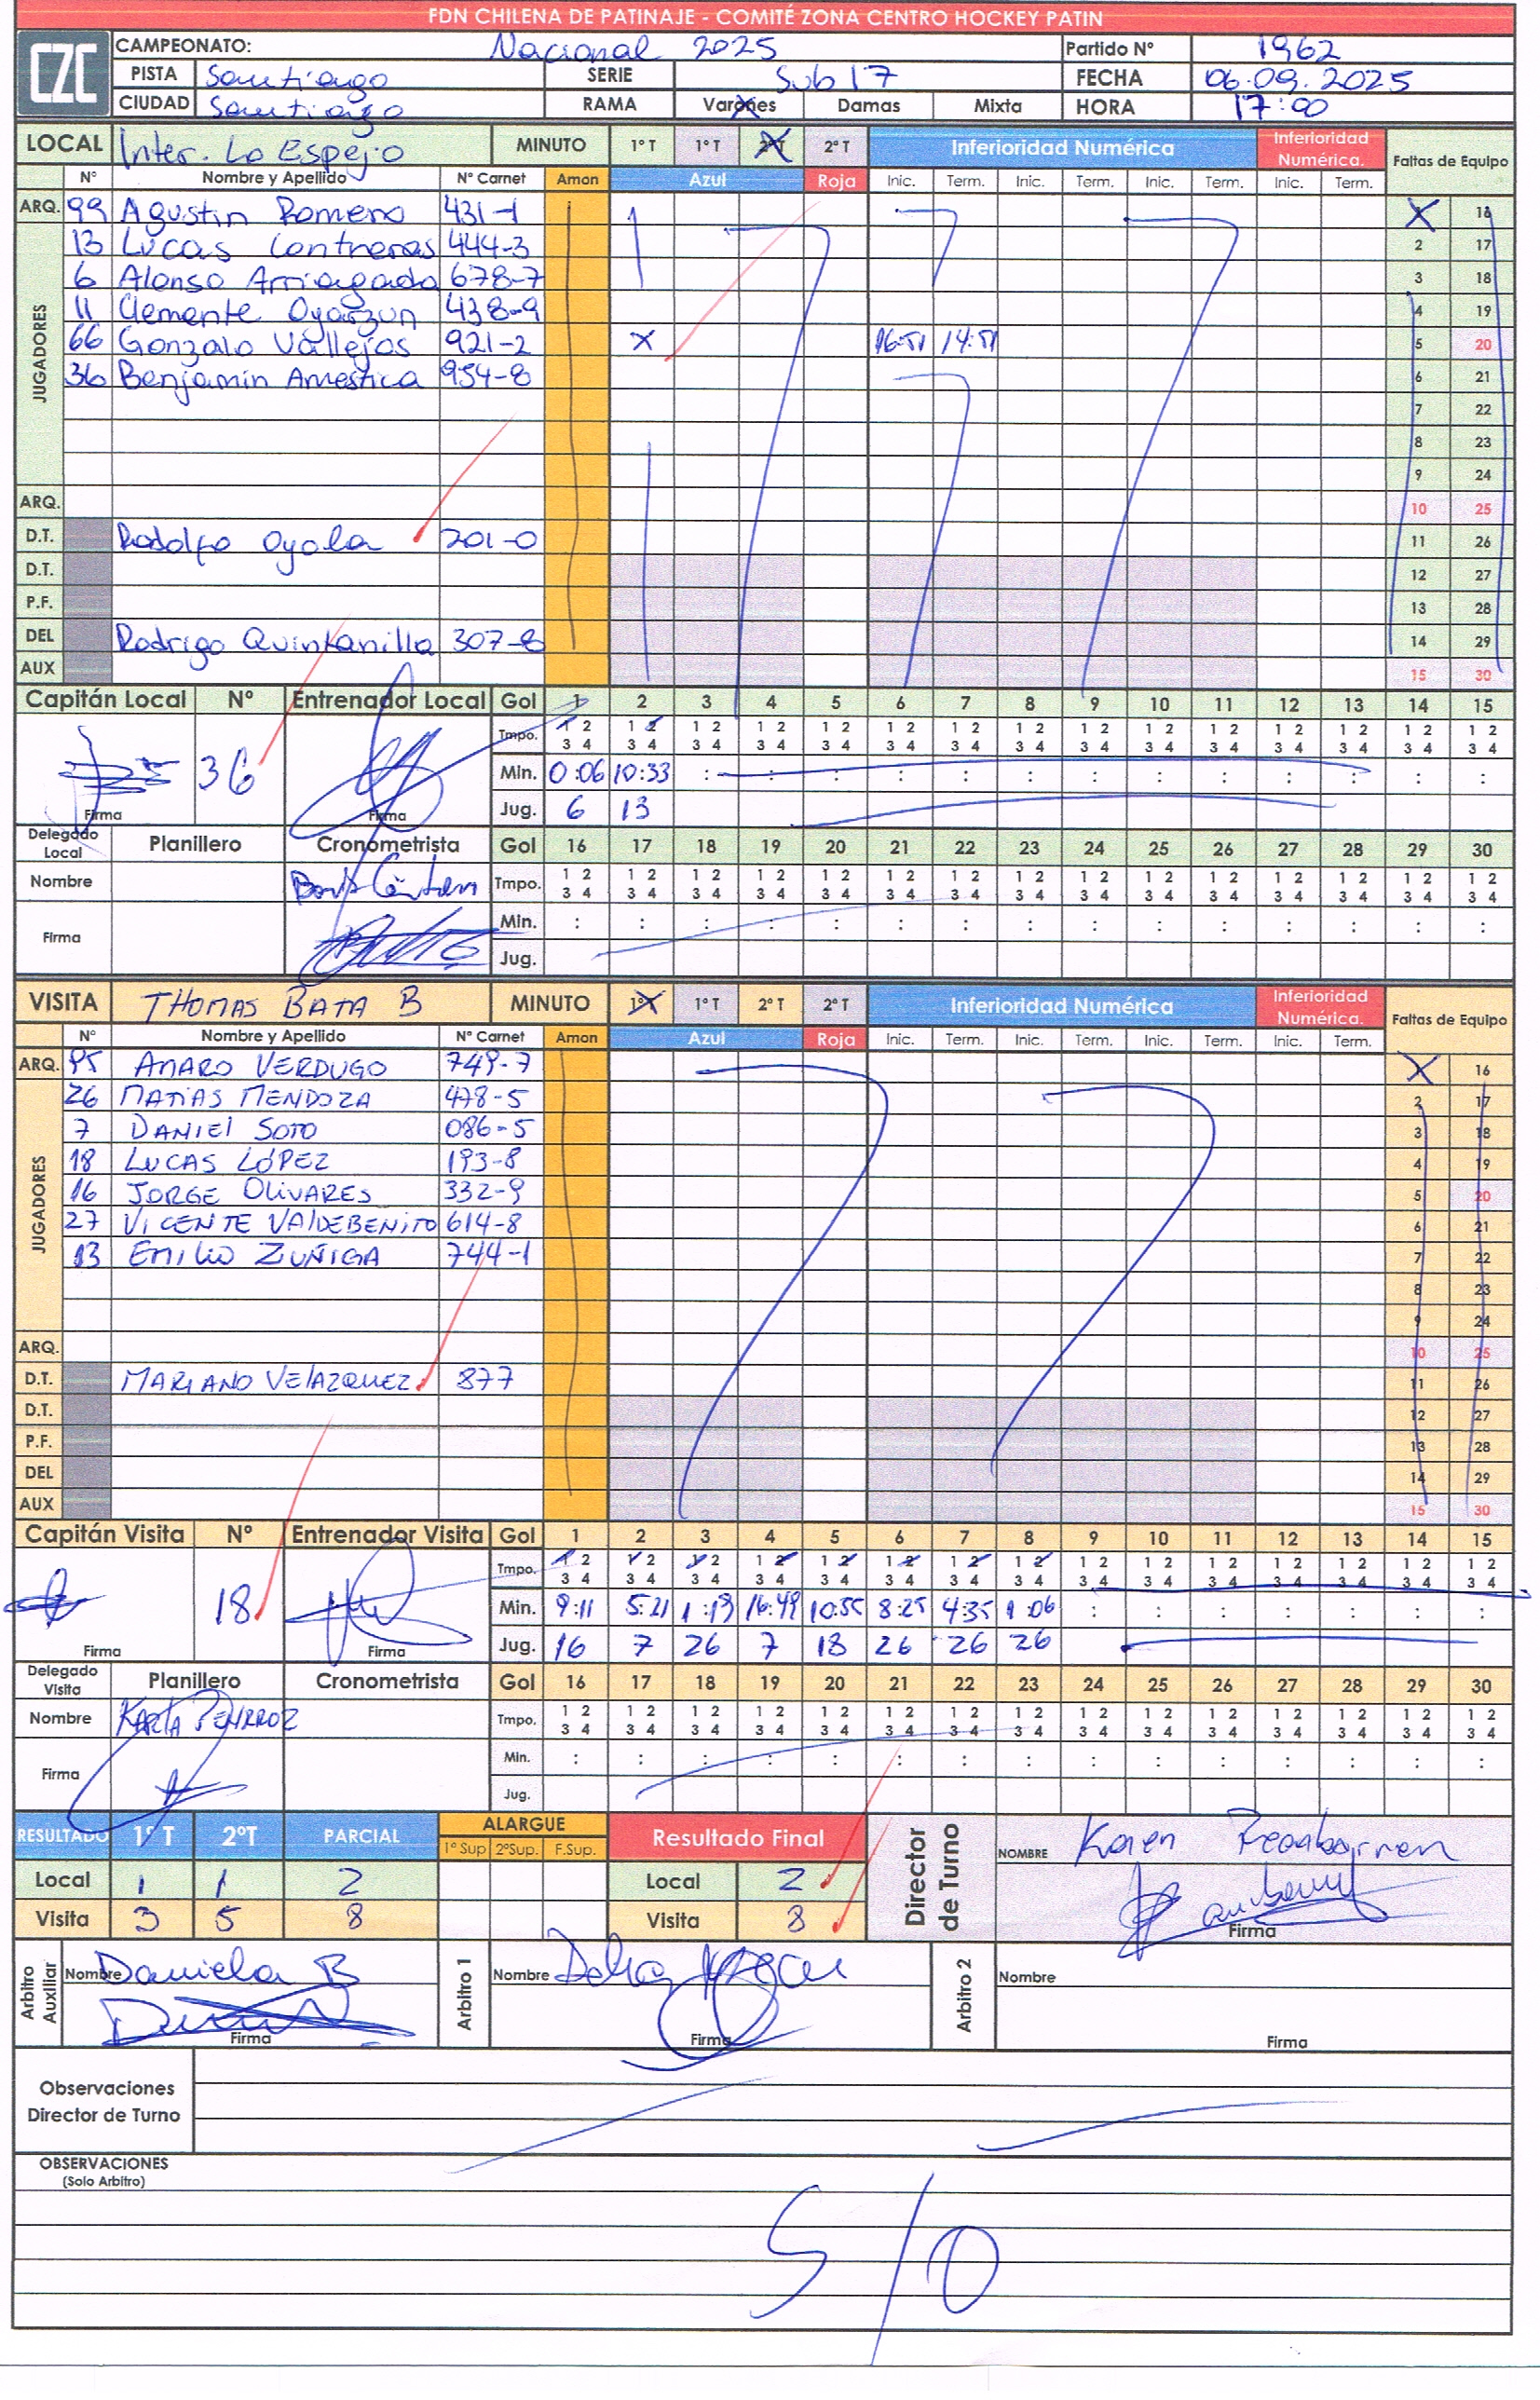 FDN CHILENA DE PATINAJE - COMITÉ ZONA CENTRO HOCKEY PATIN
CZC
CAMPEONATO: Nacional 2025 Partido Nº 1962
PISTA Santiago SERIE Sub 17 FECHA 06.09.2025
CIUDAD Santiago RAMA Varones Damas Mixta HORA 17:00
LOCAL Inter. Lo Espejo MINUTO 1º T 1º T 2º T 2º T Inferioridad Numérica Inferioridad Numérica. Faltas de Equipo
Nº Nombre y Apellido Nº Carnet Amon Azul Roja Inic. Term. Inic. Term. Inic. Term. Inic. Term.
ARQ. 99 Agustin Romero 431-1 X 16
JUGADORES
13 Lucas Contreras 444-3 2 17
6 Alonso Arriagada 678-7 3 18
11 Clemente Oyarzun 438-9 4 19
66 Gonzalo Vallejos 921-2 X 16:51 14:51 5 20
36 Benjamin Amestica 954-8 6 21
7 22
8 23
9 24
ARQ. 10 25
D.T. Rodolfo Oyola 201-0 11 26
D.T. 12 27
P.F. 13 28
DEL Rodrigo Quintanilla 307-8 14 29
AUX 15 30
Capitán Local Nº Entrenador Local Gol 1 2 3 4 5 6 7 8 9 10 11 12 13 14 15
36 Tmpo. 1 2 1 2 1 2 1 2 1 2 1 2 1 2 1 2 1 2 1 2 1 2 1 2 1 2 1 2 1 2
3 4 3 4 3 4 3 4 3 4 3 4 3 4 3 4 3 4 3 4 3 4 3 4 3 4 3 4 3 4
Min. 0:06 10:33 : : : : : : : : : : : : :
Firma Firma Jug. 6 13
Delegado Local Planillero Cronometrista Gol 16 17 18 19 20 21 22 23 24 25 26 27 28 29 30
Nombre Tmpo. 1 2 1 2 1 2 1 2 1 2 1 2 1 2 1 2 1 2 1 2 1 2 1 2 1 2 1 2 1 2
3 4 3 4 3 4 3 4 3 4 3 4 3 4 3 4 3 4 3 4 3 4 3 4 3 4 3 4 3 4
Firma Min. : : : : : : : : : : : : : : :
Jug.
VISITA THOMAS BATA B MINUTO 1º T 1º T 2º T 2º T Inferioridad Numérica Inferioridad Numérica. Faltas de Equipo
Nº Nombre y Apellido Nº Carnet Amon Azul Roja Inic. Term. Inic. Term. Inic. Term. Inic. Term.
ARQ. 85 AMARO VERDUGO 749-7 X 16
JUGADORES
26 MATÍAS MENDOZA 478-5 2 17
7 DANIEl SOTO 086-5 3 18
18 LUCAS LÓPEZ 193-8 4 19
16 JORGE OlIVARES 332-9 5 20
27 VICENTE VAlDEBENITO 614-8 6 21
13 EMILIO ZUÑIGA 744-1 7 22
8 23
9 24
ARQ. 10 25
D.T. MARIANO VElAZQUEZ 877 11 26
D.T. 12 27
P.F. 13 28
DEL 14 29
AUX 15 30
Capitán Visita Nº Entrenador Visita Gol 1 2 3 4 5 6 7 8 9 10 11 12 13 14 15
18 Tmpo. 1 2 1 2 1 2 1 2 1 2 1 2 1 2 1 2 1 2 1 2 1 2 1 2 1 2 1 2 1 2
3 4 3 4 3 4 3 4 3 4 3 4 3 4 3 4 3 4 3 4 3 4 3 4 3 4 3 4 3 4
Min. 9:11 5:21 1:19 16:49 10:55 8:25 4:35 1:06 : : : : : : :
Firma Firma Jug. 16 7 26 7 18 26 26 26
Delegado Visita Planillero Cronometrista Gol 16 17 18 19 20 21 22 23 24 25 26 27 28 29 30
Nombre KARLA Tmpo. 1 2 1 2 1 2 1 2 1 2 1 2 1 2 1 2 1 2 1 2 1 2 1 2 1 2 1 2 1 2
3 4 3 4 3 4 3 4 3 4 3 4 3 4 3 4 3 4 3 4 3 4 3 4 3 4 3 4 3 4
Firma Min. : : : : : : : : : : : : : : :
Jug.
RESULTADO 1ºT 2ºT PARCIAL ALARGUE Resultado Final Director de Turno NOMBRE Karen
1º Sup 2ºSup. F.Sup.
Local 1 1 2 Local 2
Visita 3 5 8 Visita 8 Firma
Arbitro Auxiliar Nombre Daniela B Arbitro 1 Nombre Arbitro 2 Nombre
Firma Firma Firma
Observaciones
Director de Turno
OBSERVACIONES
(Solo Arbitro)
S/O